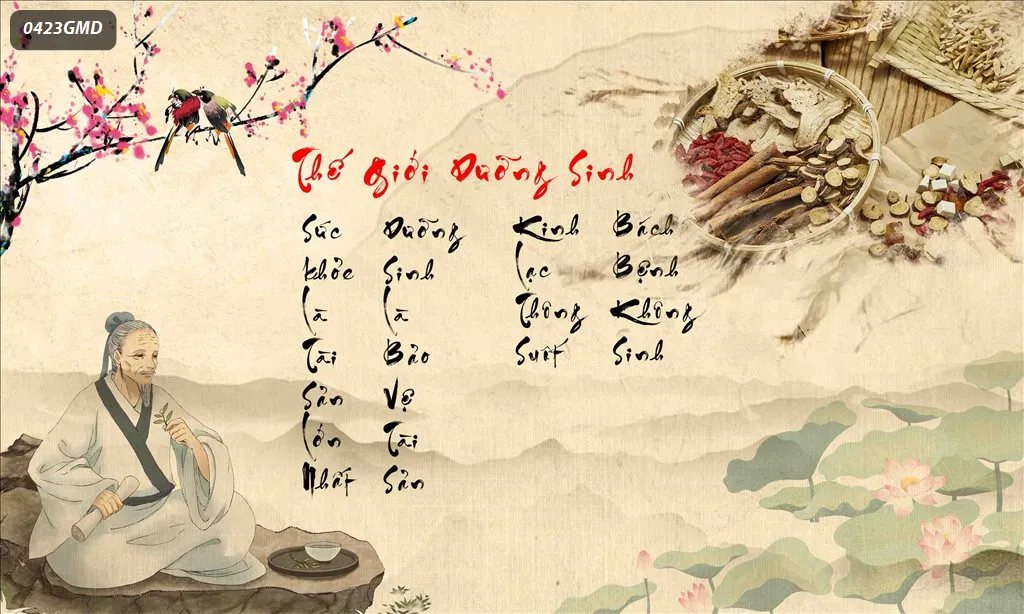 0423GMD
Thế Giới Dưỡng Sinh
Sức khỏe Là Tài Sản Lớn Nhất
Dưỡng Sinh Là Bảo Vệ Tài Sản
Kinh Lạc Thông Suốt
Bách Bệnh Không Sinh